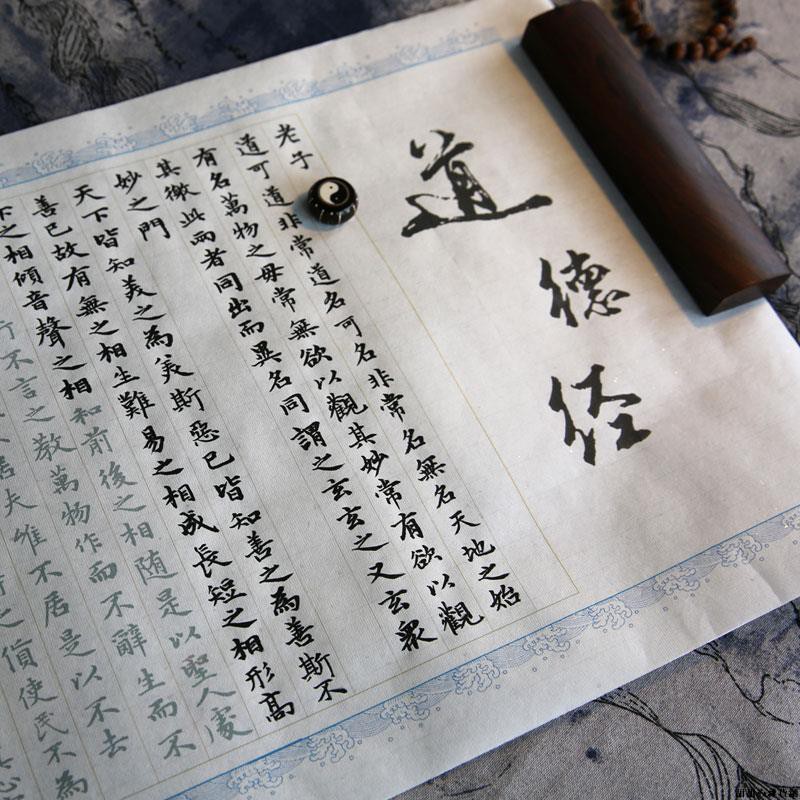 道德经
老子
道可道非常道名可名非常名無名天地之始
有名萬物之母常無欲以觀其妙常有欲以觀
其徼此兩者同出而異名同謂之玄玄之又玄衆
妙之門
天下皆知美之為美斯惡已皆知善之為善斯不
善已故有無之相生難易之相成長短之相形高
下之相傾音聲之相和前後之相随是以聖人處
行不言之教萬物作而不辭生而不
居夫唯不居是以不去
之貨使民不為